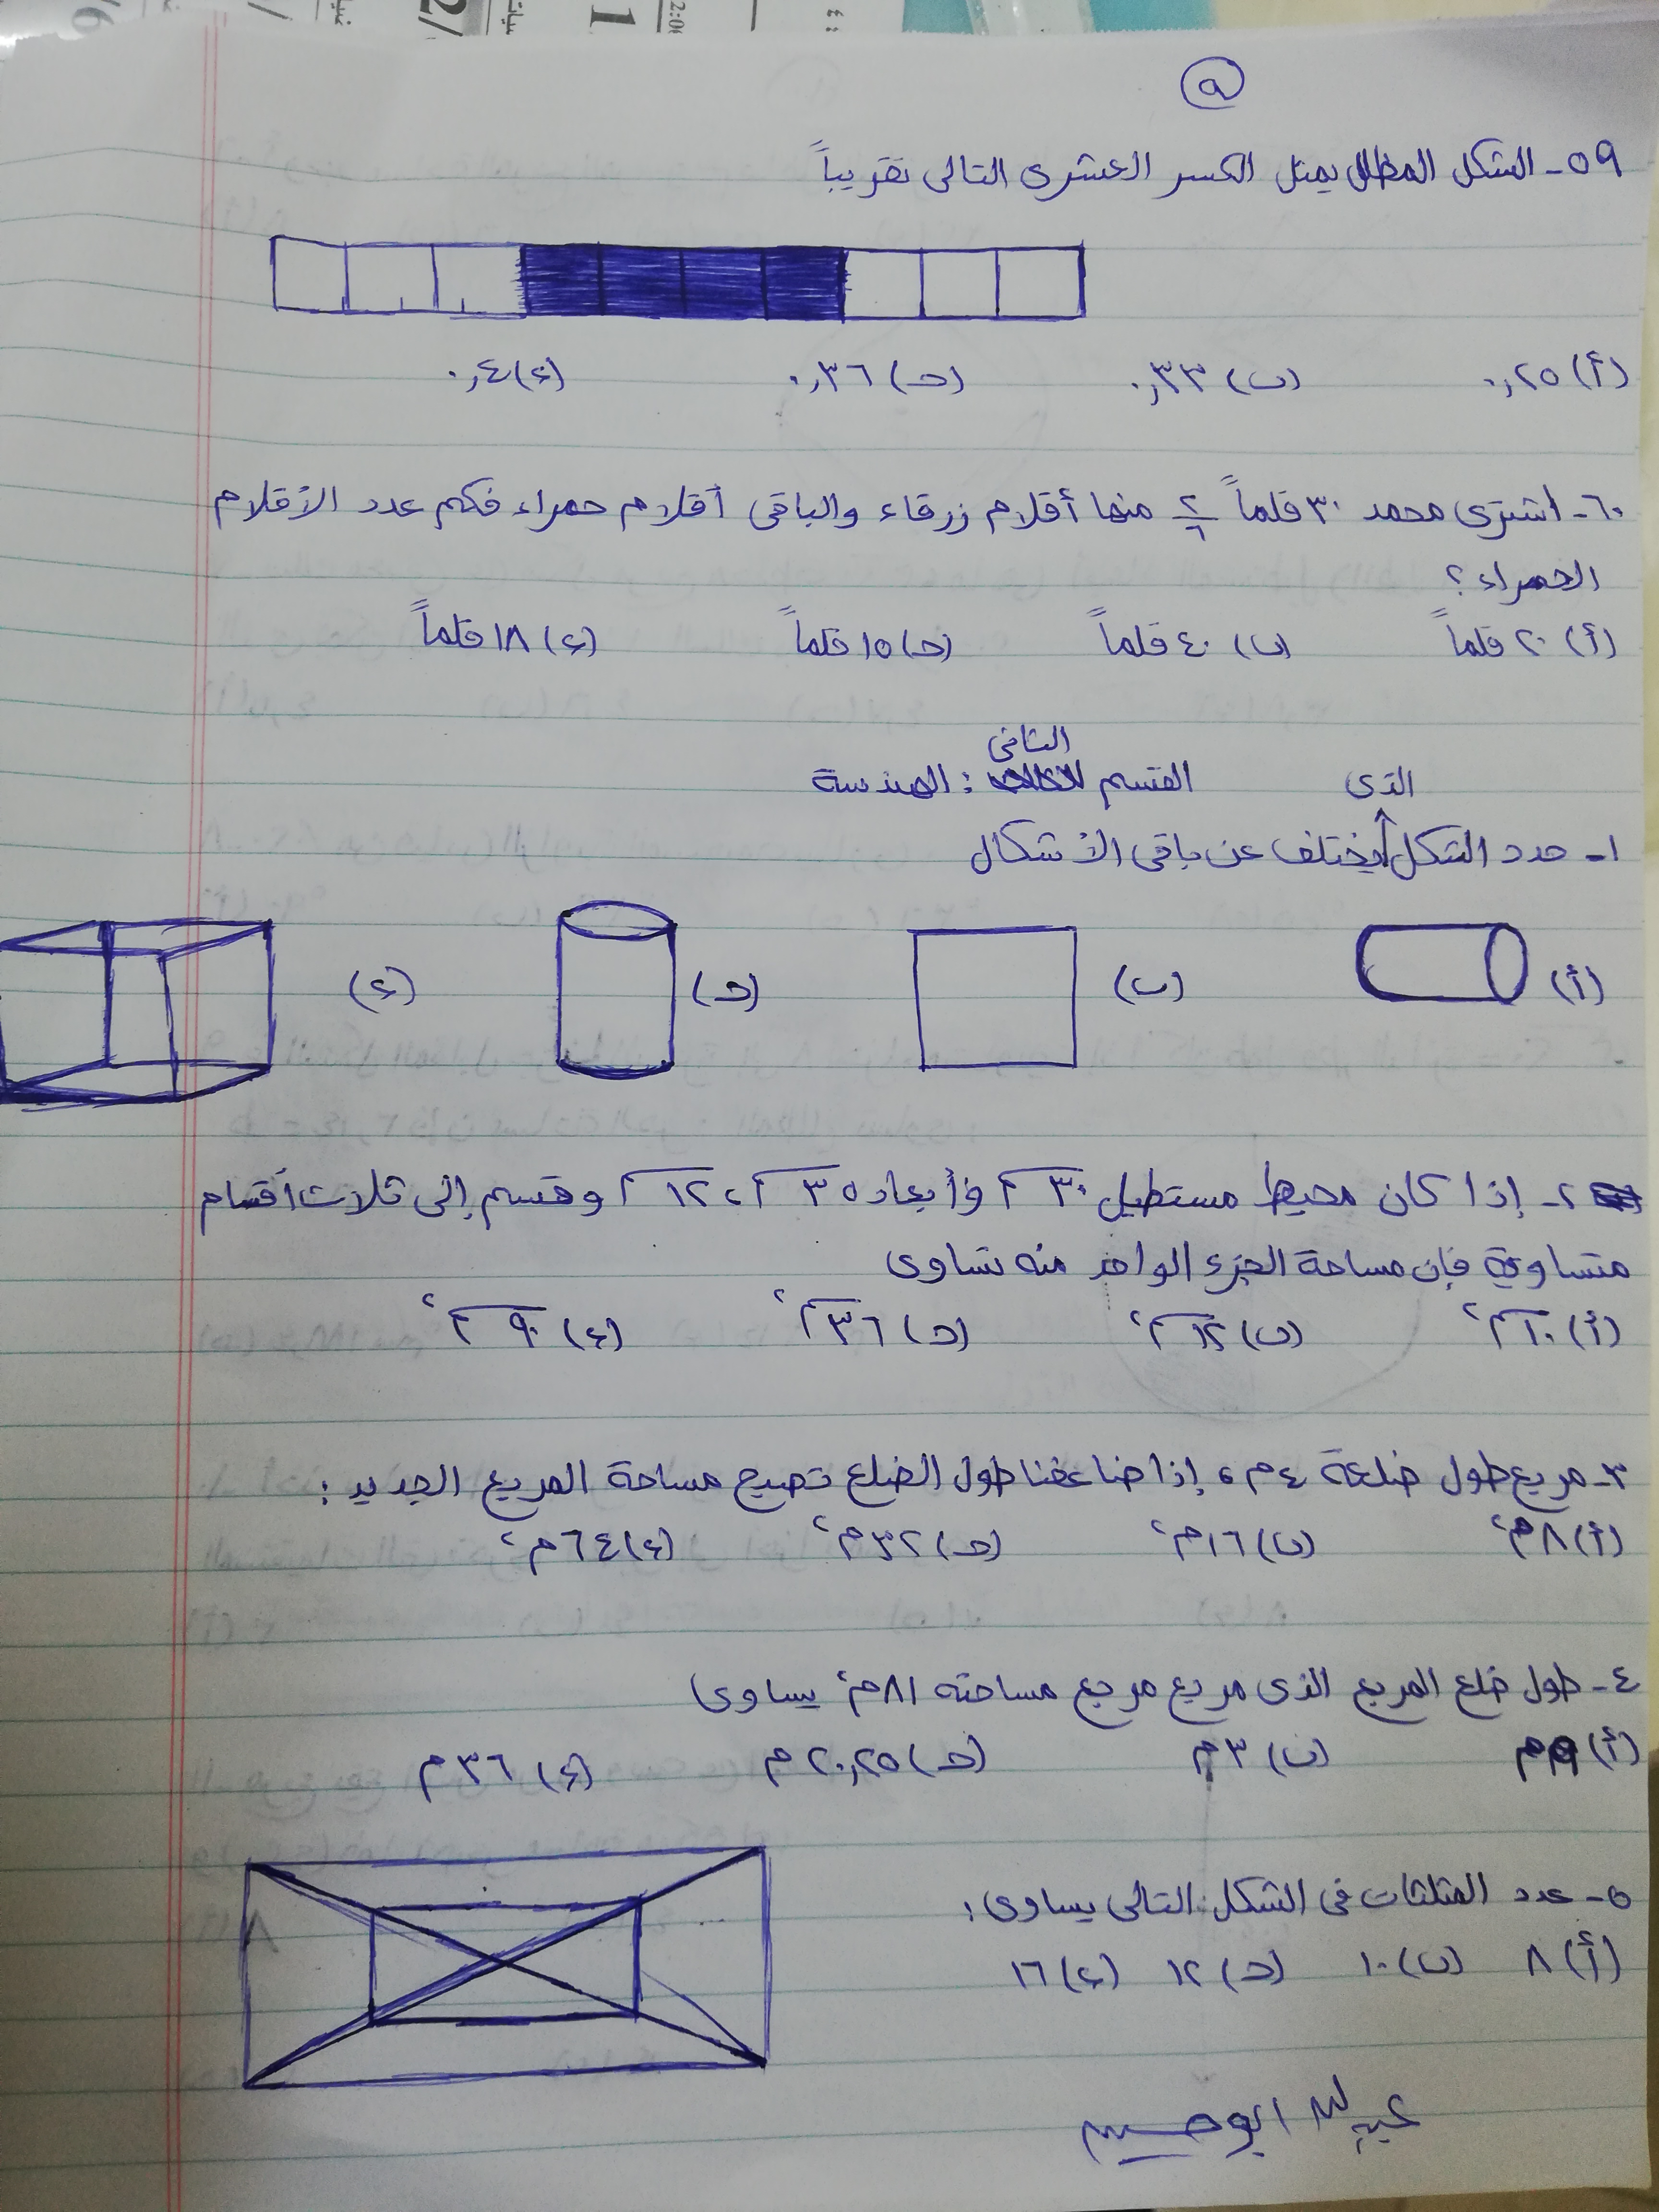 ٩
٥٩- الشكل المظلل يمثل الكسر العشرى التالى تقريباً
(أ) ٠,٢٥ (ب) ٠,٣٣ (ح) ٠,٣٦ (ء) ٠,٤
٦٠- اشترى محمد ٣٠ قلماً ٢/٦ منها أقلام زرقاء والباقى أقلام حمراء فكم عدد الأقلام
الحمراء؟
(أ) ٢٠ قلماً (ب) ٤٠ قلماً (ح) ١٥ قلماً (ء) ١٨ قلماً
القسم الثانى : الهندسة
١- حدد الشكل الذى يختلف عن باقى الأشكال
(أ) (ب) (ح) (ء)
٢- إذا كان محيط مستطيل ٣٠م وأبعاده ٣م، ١٢م وقسم إلى ثلاث أقسام
متساوية فإن مساحة الجزء الواحد منه تساوى
(أ) ١٠م٢ (ب) ١٢م٢ (ح) ٣٦م٢ (ء) ٩٠م٢
٣- مربع طول ضلعة ٤م، إذا ضاعفنا طول الضلع تصبح مساحة المربع الجديد :
(أ) ٨م٢ (ب) ١٦م٢ (ح) ٣٢م٢ (ء) ٦٤م٢
٤- طول ضلع المربع الذى مربع مربع مساحته ٨١م٢ يساوى
(أ) ٩م (ب) ٣م (ح) ٢٠,٢٥م (ء) ٣٦م
٥- عدد المثلثات فى الشكل التالى يساوى:
(أ) ٨ (ب) ١٠ (ح) ١٢ (ء) ١٦